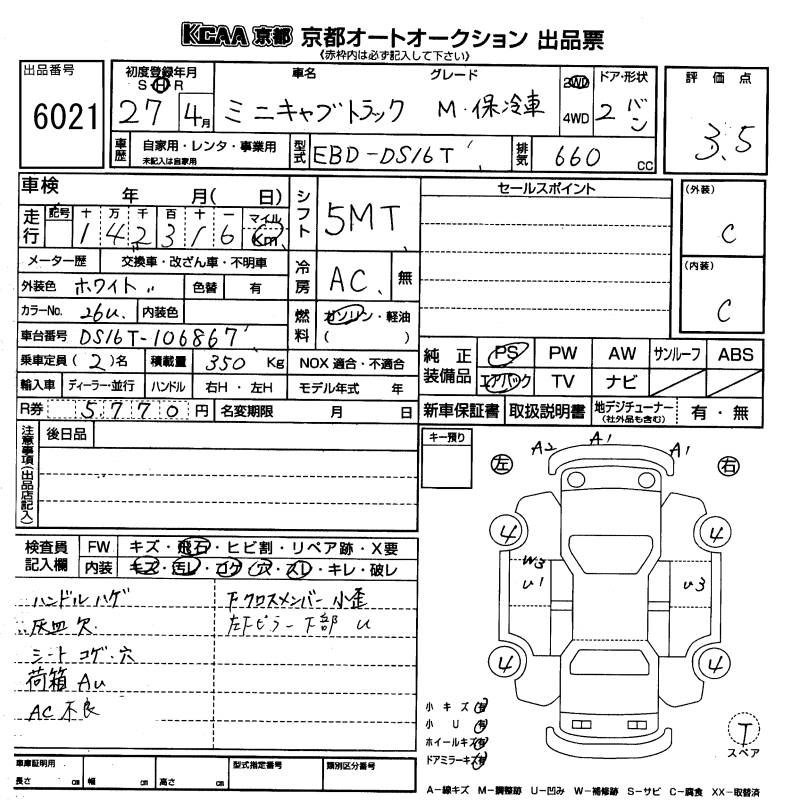 KCAA 京都 京都オートオークション 出品票
《赤枠内は必ず記入して下さい》
出品番号 6021
初度登録年月 S H R 27 4月
車名 グレード ミニキャブトラック M・保冷車
2WD 4WD
ドア・形状 2 バン
評価点 3.5
車歴 自家用・レンタ・事業用 未記入は自家用
型式 EBD-DS16T
排気 660 cc
車検 年 月( 日)
走行 記号 十 万 千 百 十 一 マイル Km 142316
シフト 5MT
セールスポイント
(外装) C
(内装) C
メーター歴 交換車・改ざん車・不明車
冷房 AC 無
外装色 ホワイト 色替 有
カラーNo. 26U 内装色
燃料 ガソリン・軽油 ( )
車台番号 DS16T-106867
乗車定員 (2)名 積載量 350 Kg NOX 適合・不適合
純正装備品 PS PW AW サンルーフ ABS
エアバック TV ナビ
輸入車 ディーラー・並行 ハンドル 右H・左H モデル年式 年
R券 5770円 名変期限 月 日
新車保証書 取扱説明書 地デジチューナー (社外品も含む) 有・無
注意事項(出品店記入) 後日品
キー預り
左 右
A2 A1 A1
4 4
W3 U1 U3
4 4
検査員記入欄 FW キズ・飛石・ヒビ割・リペア跡・X要
内装 キズ・汚レ・コゲ・穴・スレ・キレ・破レ
ハンドルハゲ 下クロスメンバー小歪
灰皿欠 左下ピラー下部 U
シートコゲ・穴
荷箱AU
AC不良
小キズ 有
小U 有
ホイールキズ 有
ドアミラーキズ 有
T スペア
車庫証明用 長さ cm 幅 cm 高さ cm
型式指定番号 類別区分番号
A-線キズ M-調整跡 U-凹み W-補修跡 S-サビ C-腐食 XX-取替済